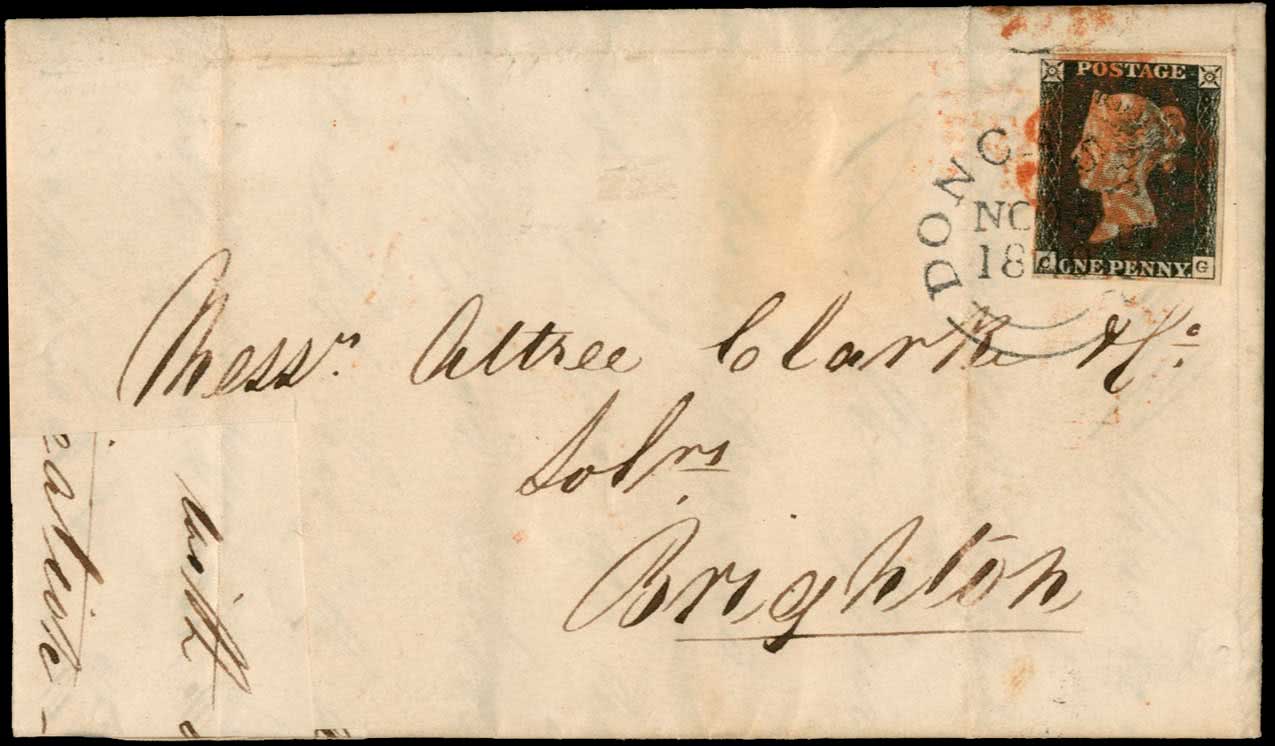 POSTAGE
DONC
NO
18
C ONE PENNY G
Messrs. Attree Clarke & Co.
Solrs
Brighton
with